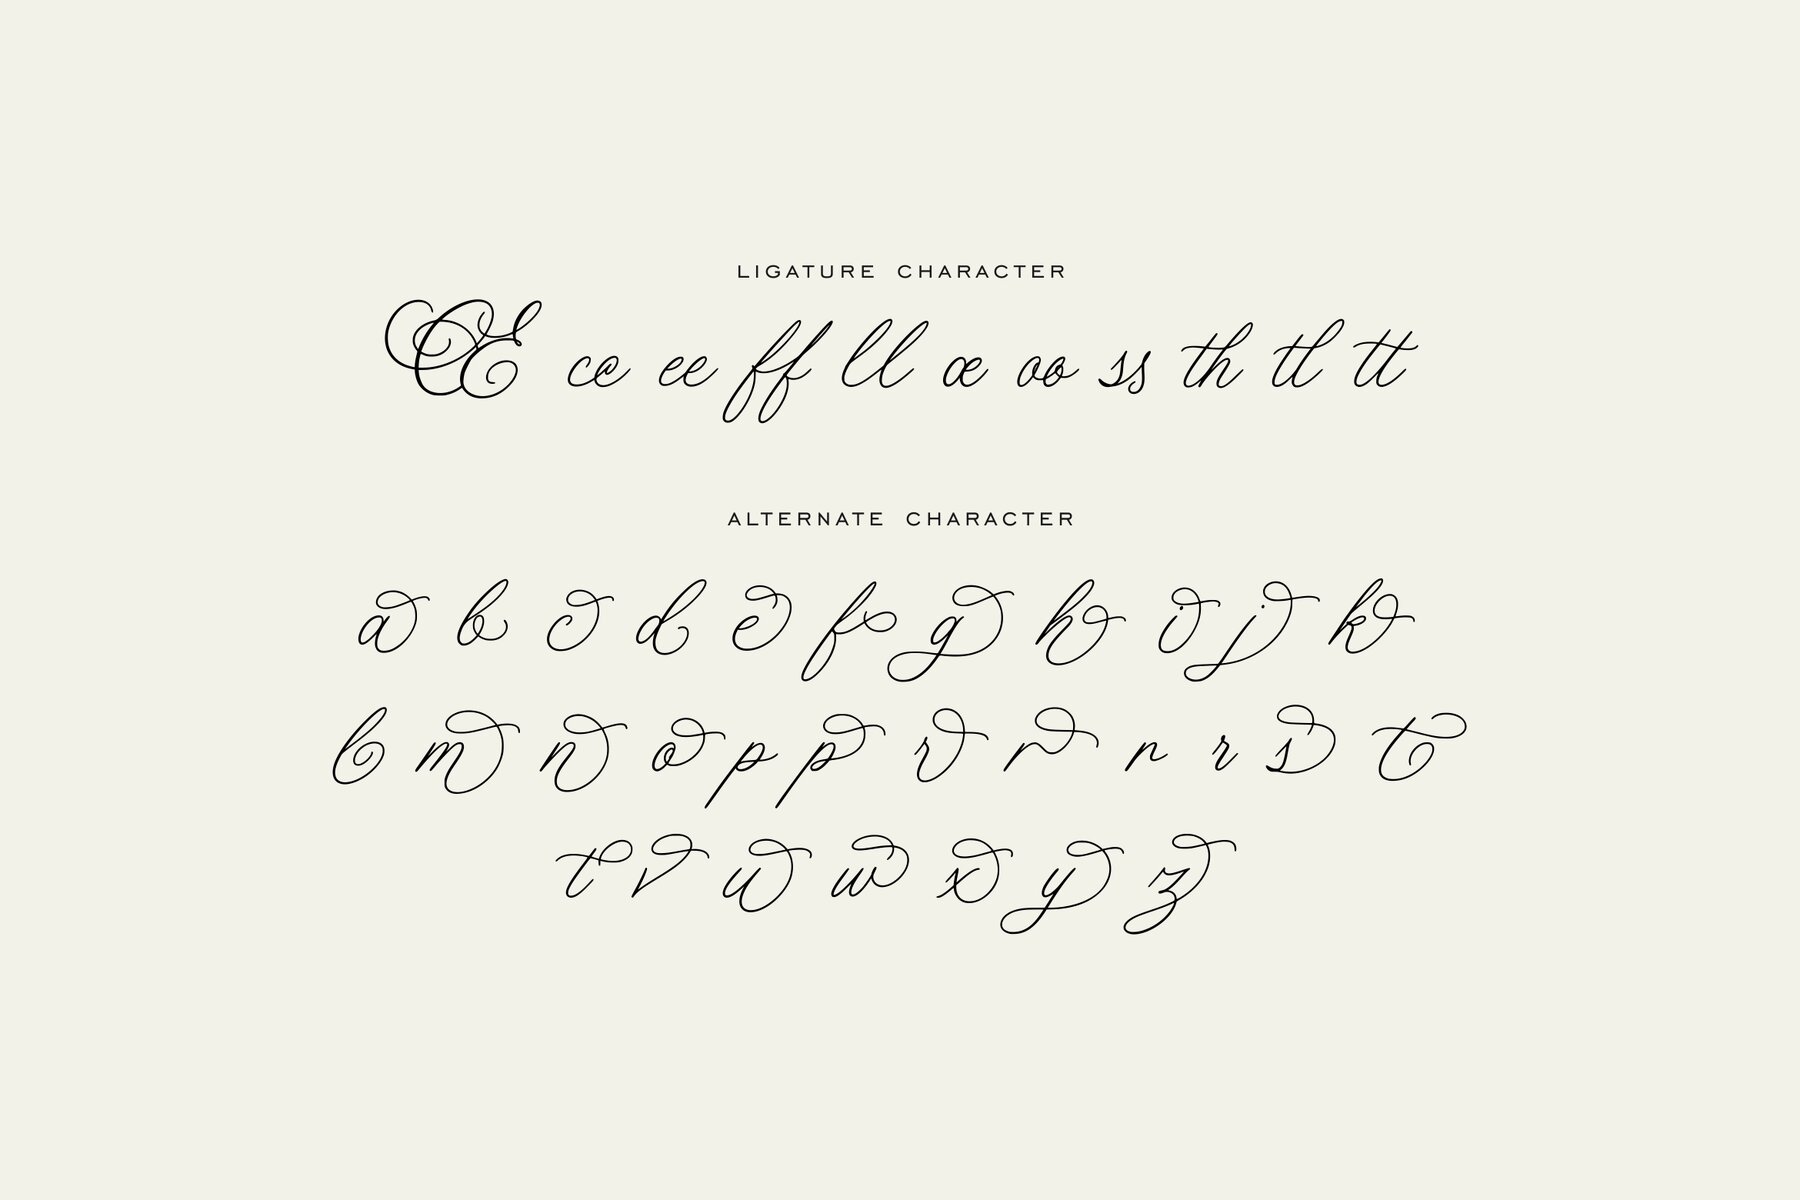 LIGATURE CHARACTER
Œ ce ee ff ll œ oo ss th tl tt
ALTERNATE CHARACTER
a b c d e f g h i j k
l m n o p p r r r r s t
t v u w x y z